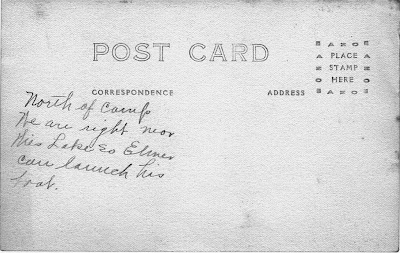 POST CARD
AZOE
A PLACE A
STAMP
HERE
CORRESPONDENCE
ADDRESS
North of camp
We are right near
this Lake so Elmer
can launch his
boat.